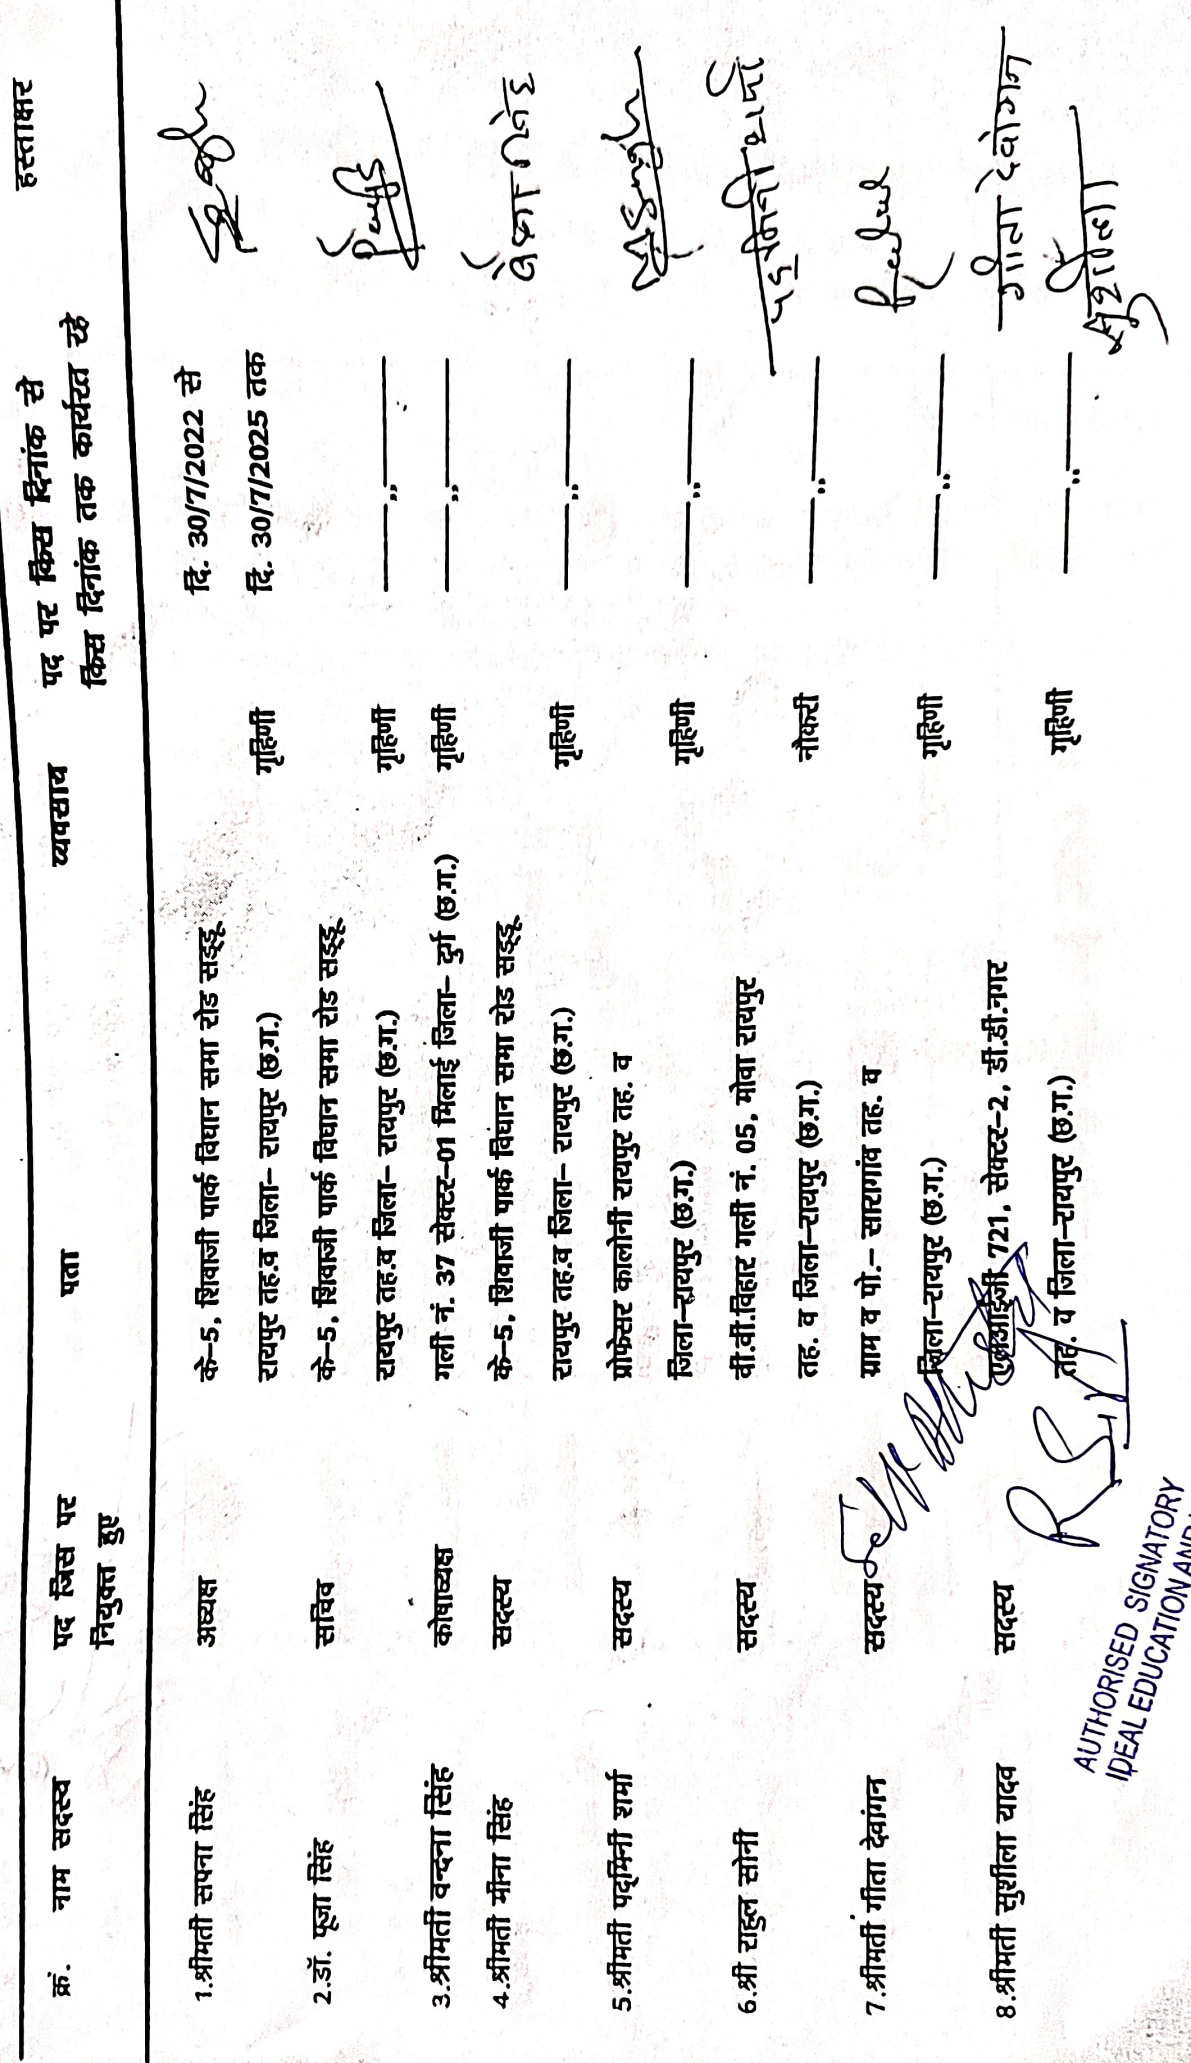 क्रं. नाम सदस्य पद जिस पर पता व्यवसाय पद पर किस दिनांक से हस्ताक्षर
नियुक्त हुए किस दिनांक तक कार्यरत रहे
1.श्रीमती सपना सिंह अध्यक्ष के-5, शिवाजी पार्क विधान सभा रोड सड्डू दि. 30/7/2022 से
रायपुर तह.व जिला- रायपुर (छ.ग.) गृहिणी दि. 30/7/2025 तक
2.डॉ. पूजा सिंह सचिव के-5, शिवाजी पार्क विधान सभा रोड सड्डू
रायपुर तह.व जिला- रायपुर (छ.ग.) गृहिणी ——,,——
3.श्रीमती वन्दना सिंह कोषाध्यक्ष गली नं. 37 सेक्टर-01 भिलाई जिला- दुर्ग (छ.ग.) गृहिणी ——,,——
4.श्रीमती मीना सिंह सदस्य के-5, शिवाजी पार्क विधान सभा रोड सड्डू
रायपुर तह.व जिला- रायपुर (छ.ग.) गृहिणी ——,,——
5.श्रीमती पद्मिनी शर्मा सदस्य प्रोफेसर कालोनी रायपुर तह. व
जिला-रायपुर (छ.ग.) गृहिणी ——,,——
6.श्री. राहुल सोनी सदस्य वी.वी.विहार गली नं. 05, मोवा रायपुर पद्मिनी शर्मा
तह. व जिला-रायपुर (छ.ग.) नौकरी ——,,——
7.श्रीमती गीता देवांगन सदस्य ग्राम व पो.- सारागांव तह. व
जिला-रायपुर (छ.ग.) गृहिणी ——,,——
8.श्रीमती सुशीला यादव सदस्य एलआईजी 721, सेक्टर-2, डी.डी.नगर गीता देवांगन
तह. व जिला-रायपुर (छ.ग.) गृहिणी ——,,——
सुशीला
AUTHORISED SIGNATORY
IDEAL EDUCATION AND